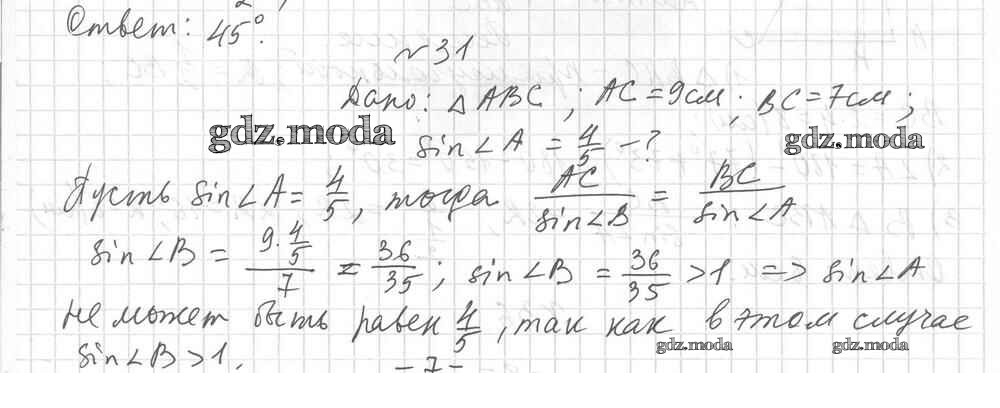 Ответ: 45°.
№31
Дано: △ABC; AC = 9см; BC = 7см;
gdz.moda sin∠A = 4/5 - ? gdz.moda
Пусть sin∠A = 4/5, тогда AC/sin∠B = BC/sin∠A
sin∠B = (9·4/5)/7 = 36/35; sin∠B = 36/35 > 1 => sin∠A
не может быть равен 4/5, так как в этом случае
sin∠B > 1. gdz.moda gdz.moda
- 7 -